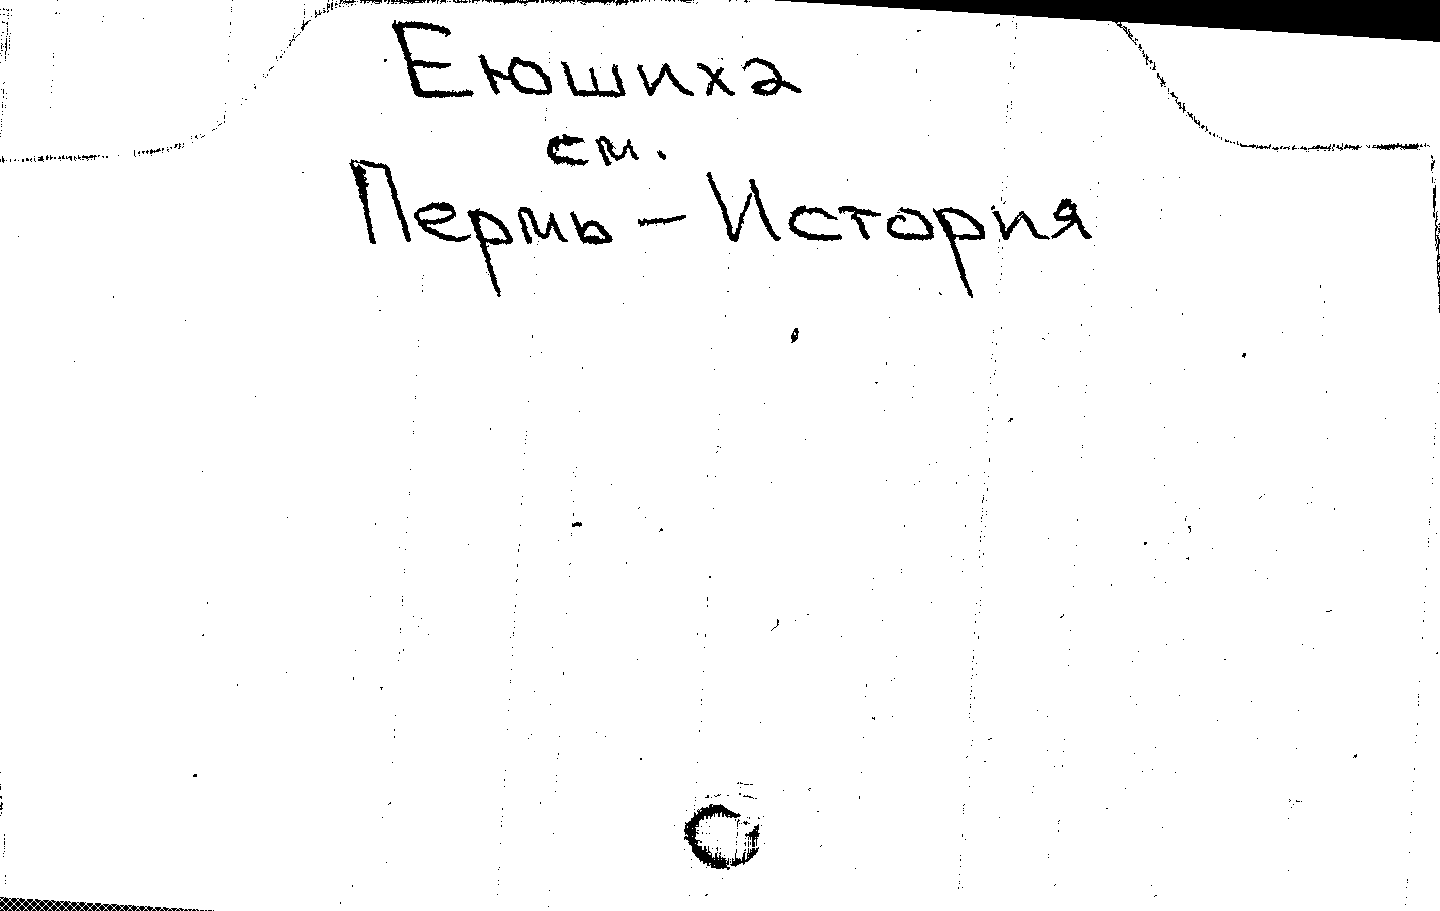 Еюшиха
см.
Пермь - История